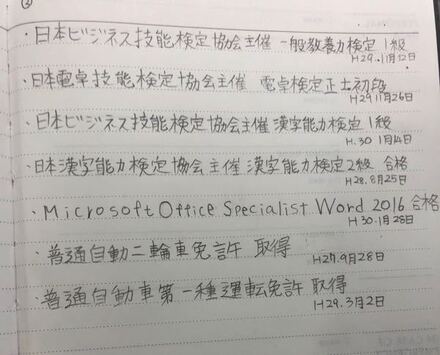 ②
・日本ビジネス技能検定協会主催 一般教養力検定 1級
H29.11月12日
・日本電卓技能検定協会主催 電卓検定正士初段
H29 11月26日
・日本ビジネス技能検定協会主催漢字能力検定 1級
H.30 1月14日
・日本漢字能力検定協会主催 漢字能力検定2級 合格
H28.8月25日
・Microsoft Office Specialist Word 2016 合格
H30.1月28日
・普通自動二輪車免許 取得
H27.9月28日
・普通自動車第一種運転免許 取得
H29.3月2日